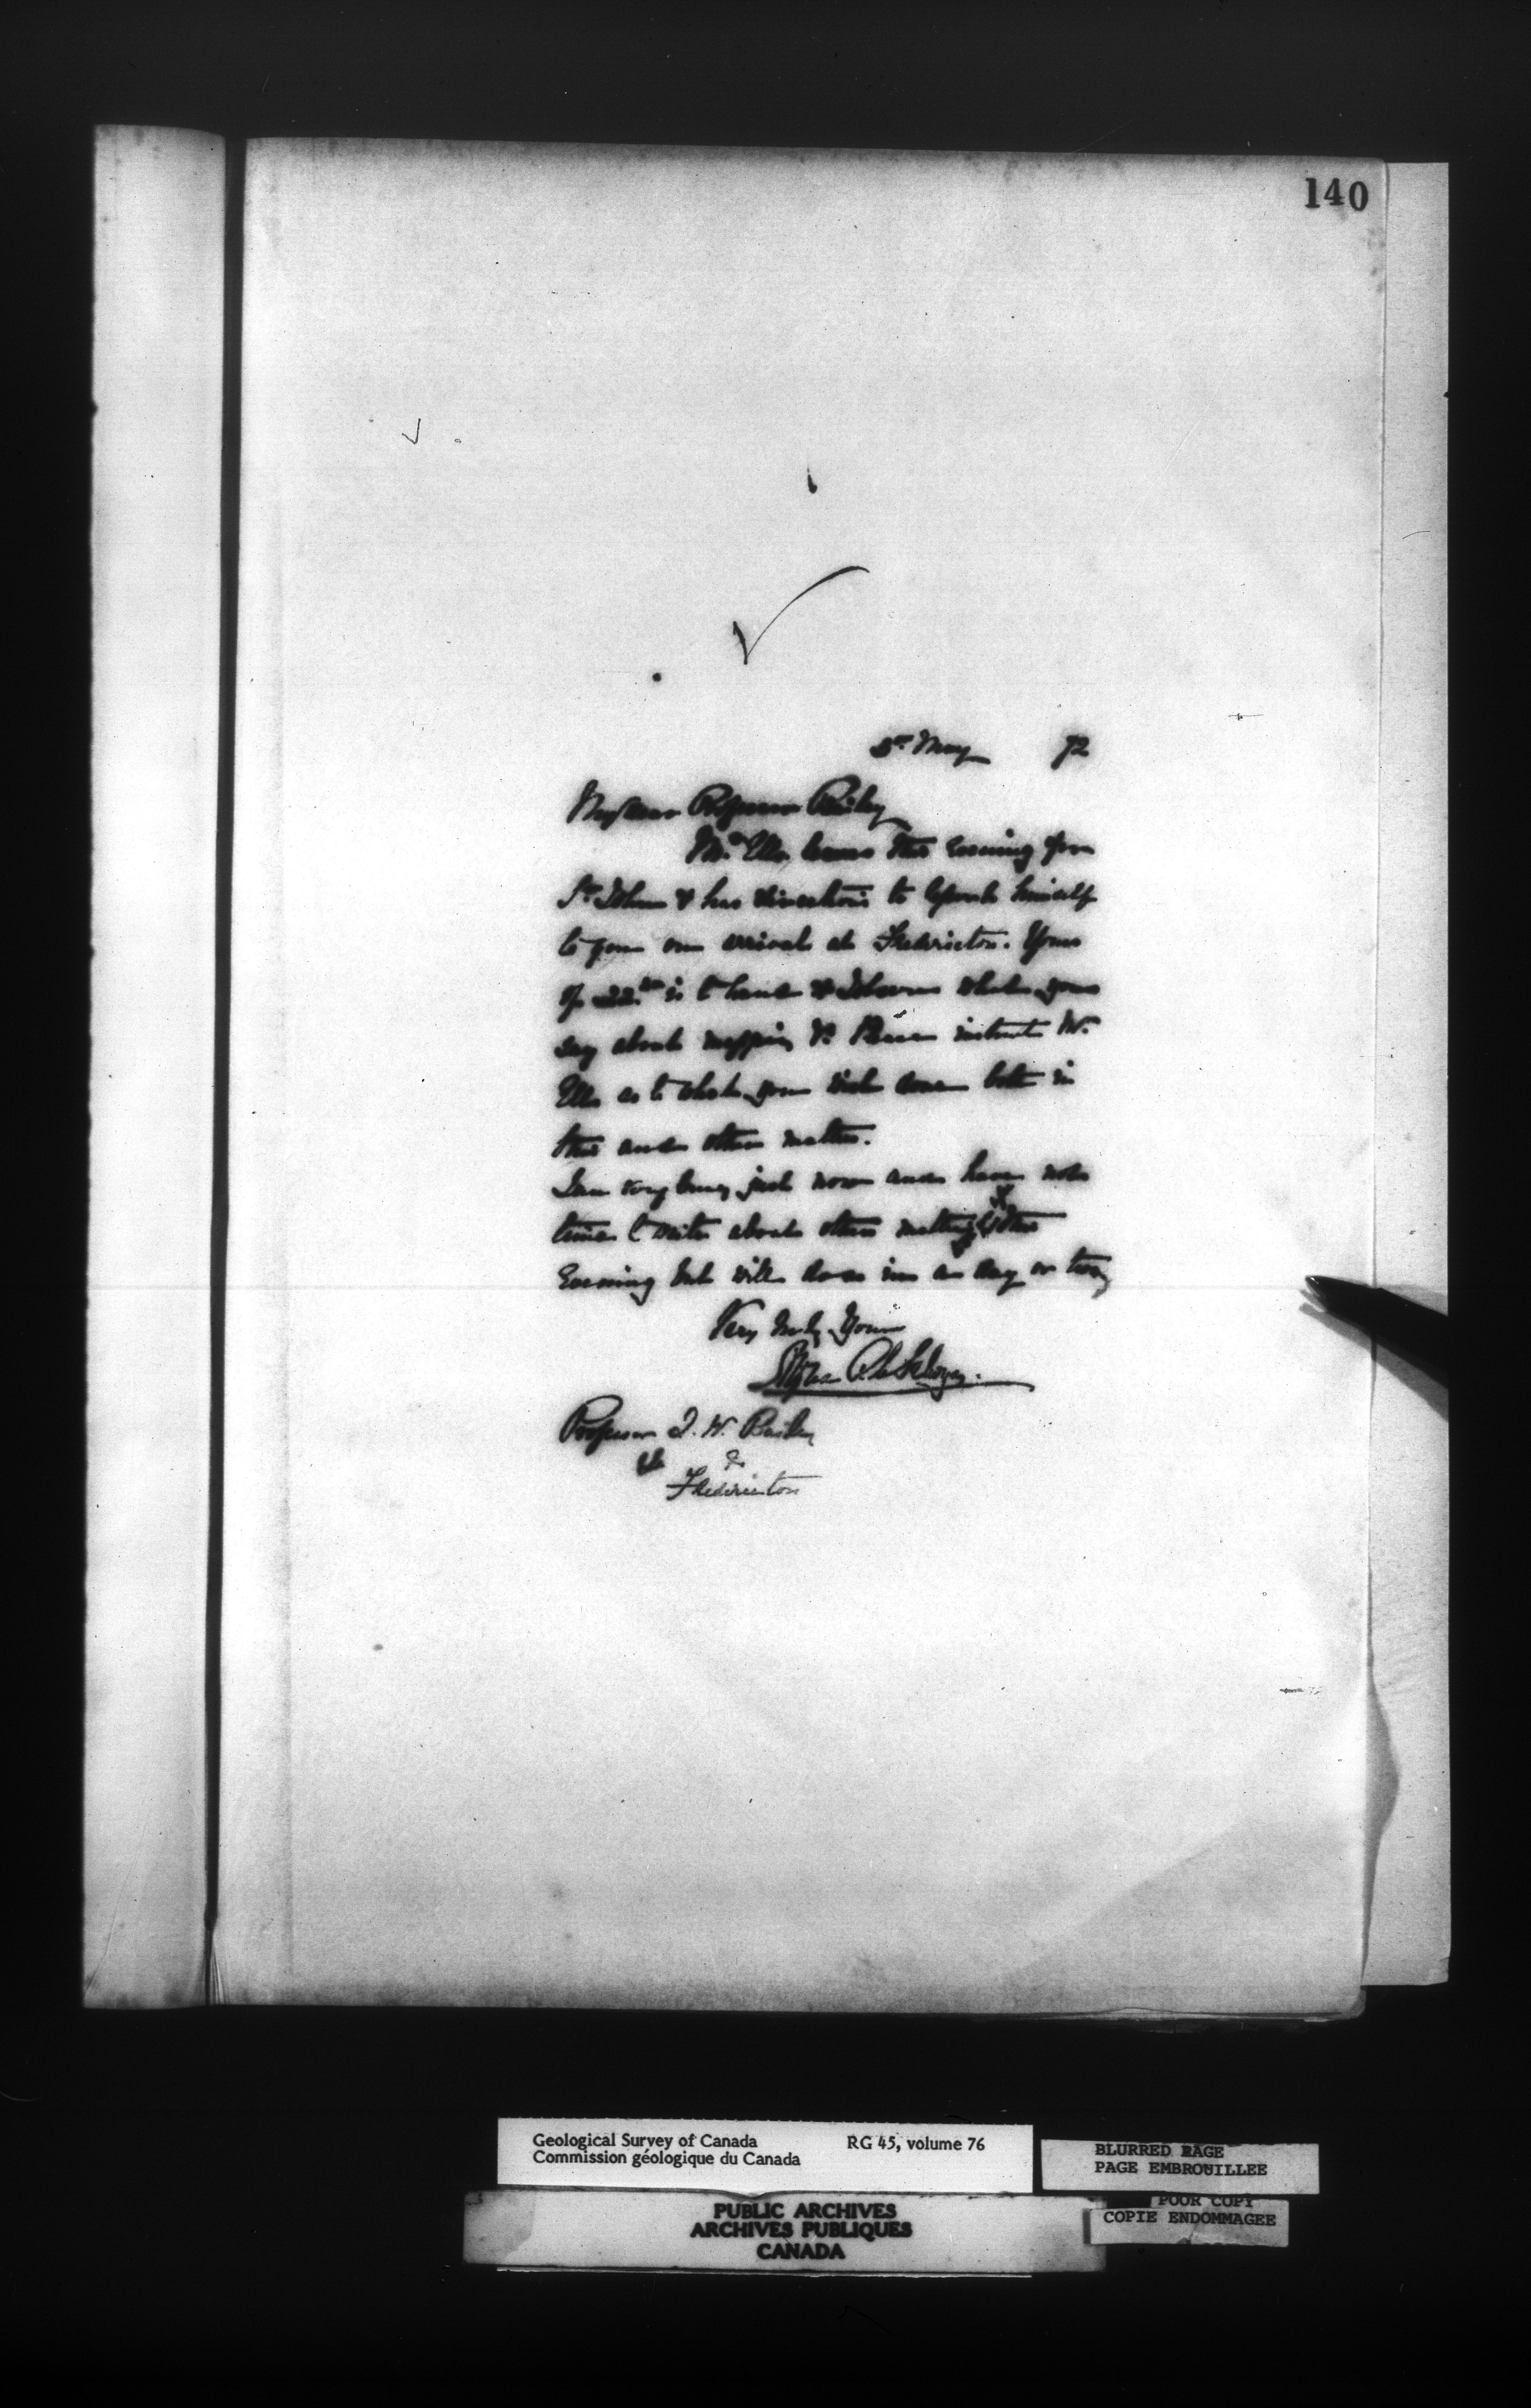 140
May 72
My dear Professor Bailey
Mr. Ells leaves this evening for
St. John & has directions to report himself
to you on arrival at Fredericton. Yours
of 22nd is to hand & observe what you
say about mapping &c. Please instruct Mr.
Ells as to what you wish done both in
this and other matters.
I am very busy just now and have not
time to write about other matters this
Evening but will do so in a day or two
Very truly Yours
Alfred R. C. Selwyn.
Professor L. W. Bailey
&c
Fredericton
Geological Survey of Canada RG 45, volume 76
Commission géologique du Canada
BLURRED PAGE
PAGE EMBROUILLEE
POOR COPY
COPIE ENDOMMAGEE
PUBLIC ARCHIVES
ARCHIVES PUBLIQUES
CANADA